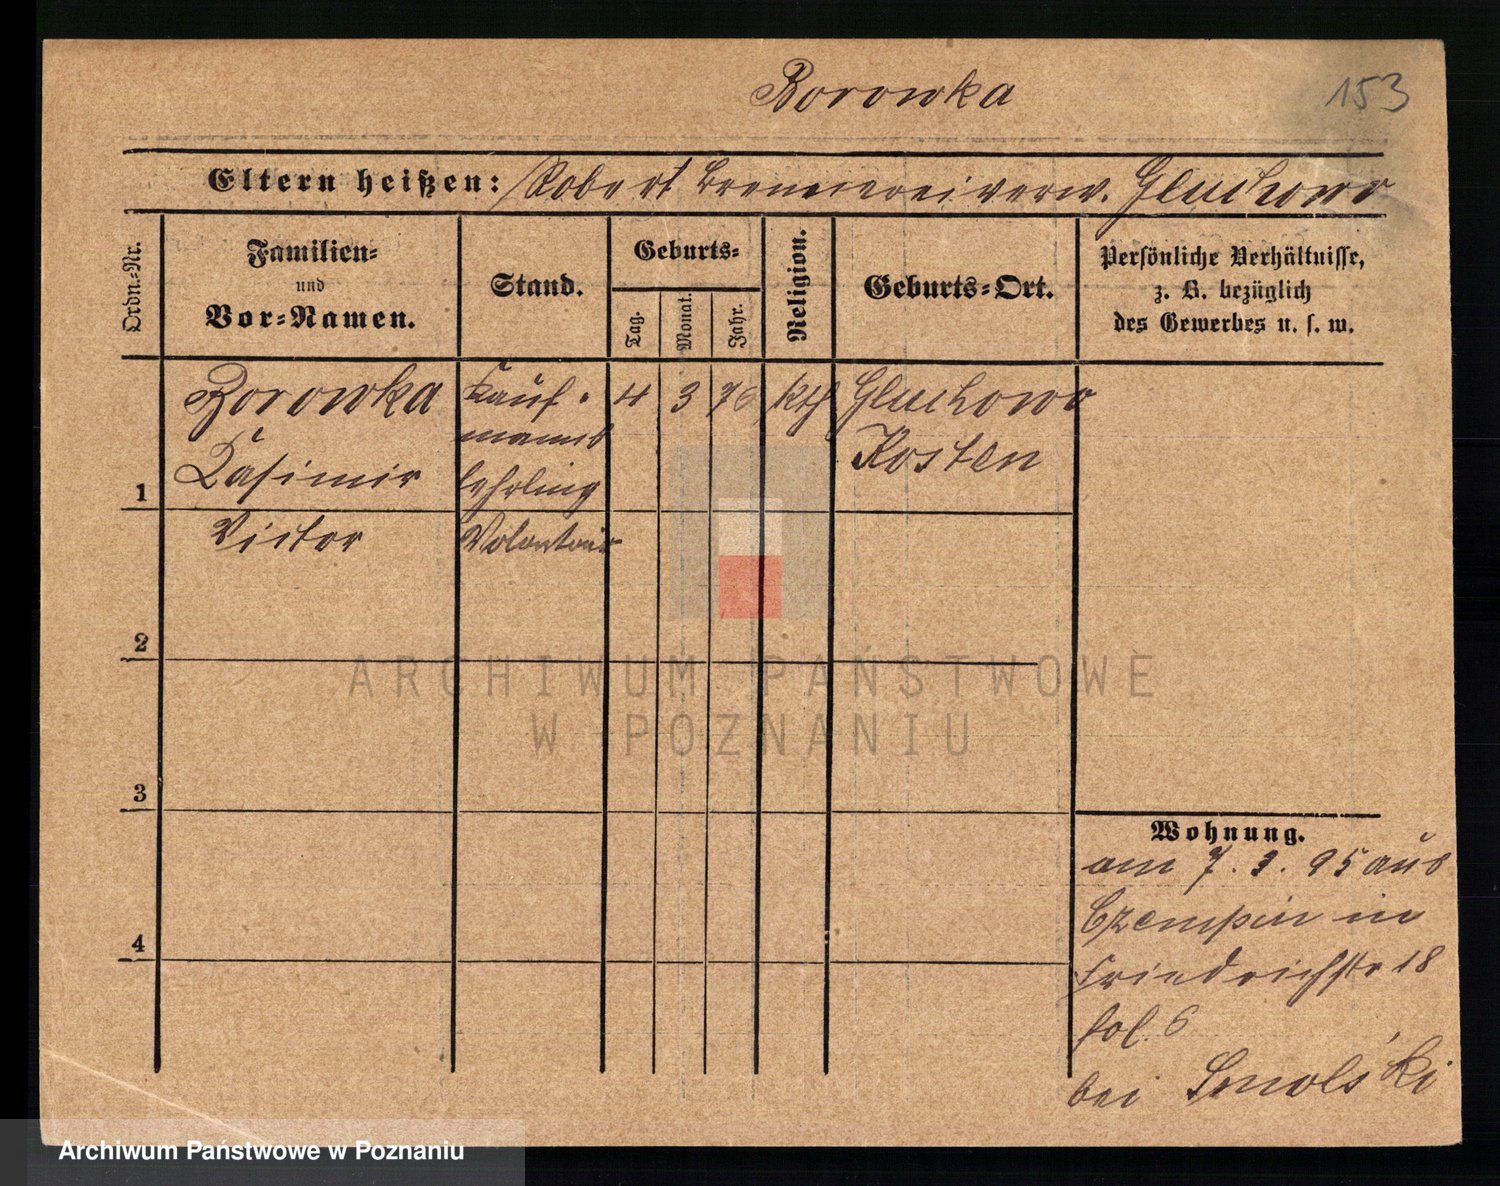 Borowka
153
Eltern heißen: Robert Brennereiverw. Gluchowo
Ordn.=Nr.
Familien=
und
Vor=Namen.
Stand.
Geburts=
Tag.
Monat.
Jahr.
Religion.
Geburts=Ort.
Persönliche Verhältnisse,
z. B. bezüglich
des Gewerbes u. s. w.
Borowka Kauf- 4 3 76 kth Gluchowo
manns Kosten
1 Casimir lehrling
Victor Volontair
2
3
4
Wohnung.
am 7. 3. 95 aus
Czempin in
Friedrichstr 18
fol. 6
bei Smolski
ARCHIWUM PAŃSTWOWE
W POZNANIU
Archiwum Państwowe w Poznaniu